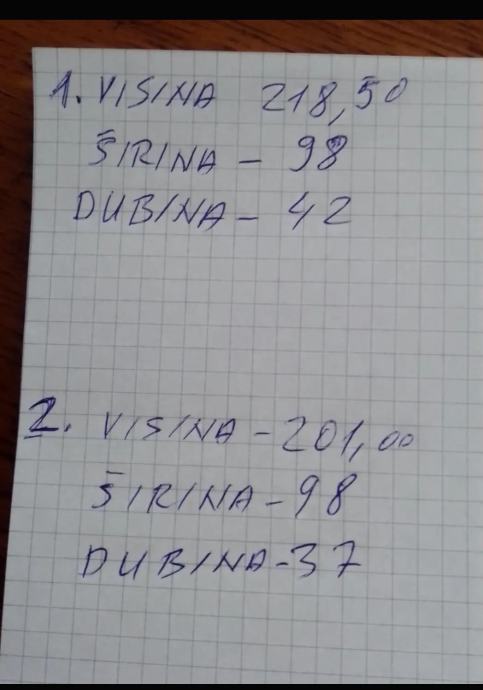 1. VISINA 218,50
ŠIRINA - 98
DUBINA - 42
2. VISINA - 201,00
ŠIRINA - 98
DUBINA - 37